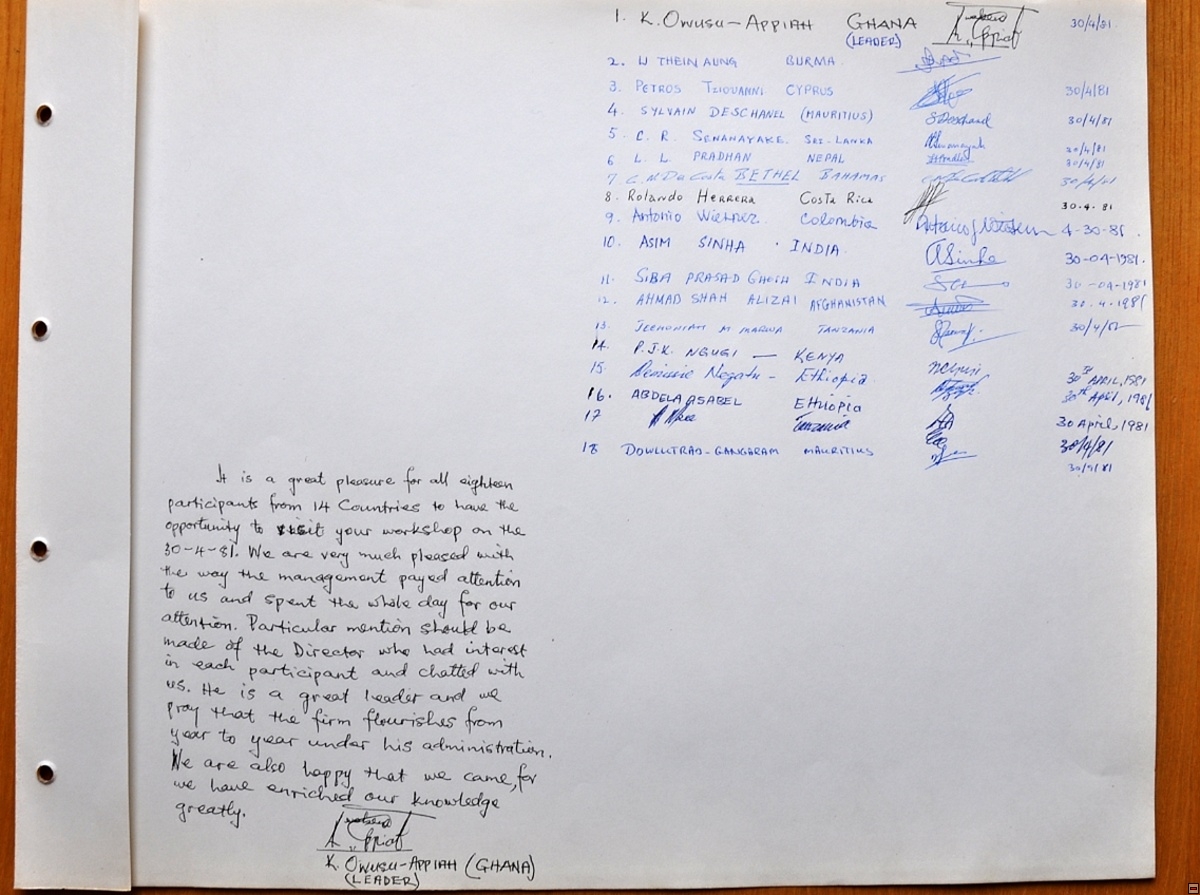 1. K. OWUSU-APPIAH GHANA 30/4/81
(LEADER)
2. U THEIN AUNG BURMA
3. PETROS TZIOVANNI CYPRUS 30/4/81
4. SYLVAIN DESCHANEL (MAURITIUS) 30/4/81
5. C. R. SENANAYAKE. SRI-LANKA 30/4/81
6 L. L. PRADHAN NEPAL 30/4/81
7 C. M. Da Costa BETHEL BAHAMAS 30/4/81
8. Rolando HERRERA Costa Rica 30.4.81
9. Antonio Colombia 4-30-81.
10. ASIM SINHA INDIA. ASinha 30-04-1981.
11. SIBA PRASAD GHOSH INDIA 30-04-1981
12. AHMAD SHAH ALIZAI AFGHANISTAN 30.4.1981
13. M TANZANIA 30/4/81
14. P.J.K. NGUGI — KENYA
15. Negatu - Ethiopia. 30 APRIL, 1981
16. ABDELA ASABEL Ethiopia 30th April, 1981
17 Tanzania 30 April, 1981
18 GANGARAM MAURITIUS 30/4/81
It is a great pleasure for all eighteen
participants from 14 Countries to have the
opportunity to visit your workshop on the
30-4-81. We are very much pleased with
the way the management payed attention
to us and spent the whole day for our
attention. Particular mention should be
made of the Director who had interest
in each participant and chatted with
us. He is a great leader and we
pray that the firm flourishes from
year to year under his administration.
We are also happy that we came, for
we have enriched our knowledge
greatly.
K. OWUSU-APPIAH (GHANA)
(LEADER)